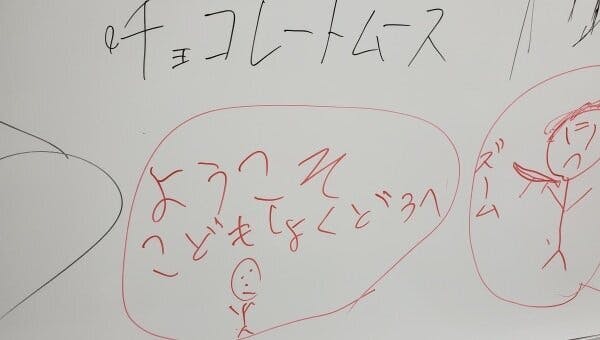 チョコレートムース
ようこそ
こどもしょくどうへ
ズーム